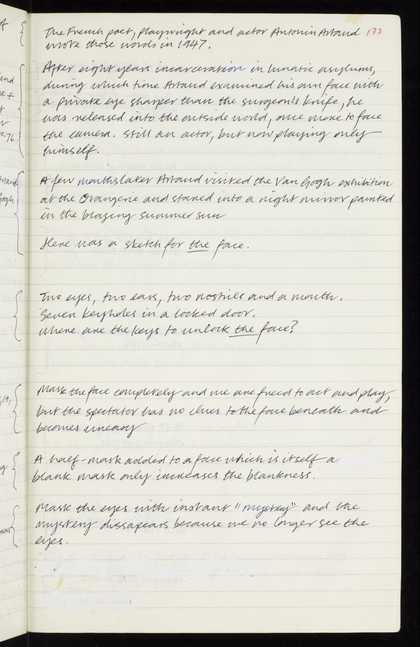 The French poet, playwright and actor Antonin Artaud 177
wrote those words in 1947.
After eight years incarceration in lunatic asylums,
during which time Artaud examined his own face with
a private eye sharper than the surgeon's knife, he
was released into the outside world, once more to face
the camera. Still an actor, but now playing only
himself.
A few months later Artaud visited the Van Gogh exhibition
at the Orangerie and stared into a night mirror painted
in the blazing summer sun
Here was a sketch for the face.
Two eyes, two ears, two nostrils and a mouth.
Seven keyholes in a locked door.
Where are the keys to unlock the face?
Mask the face completely and we are freed to act and play,
but the spectator has no clues to the face beneath and
becomes uneasy
A half-mask added to a face which is itself a
blank mask only increases the blankness.
Mask the eyes with instant "mystery" and the
mystery dissapears because we no longer see the
eyes.